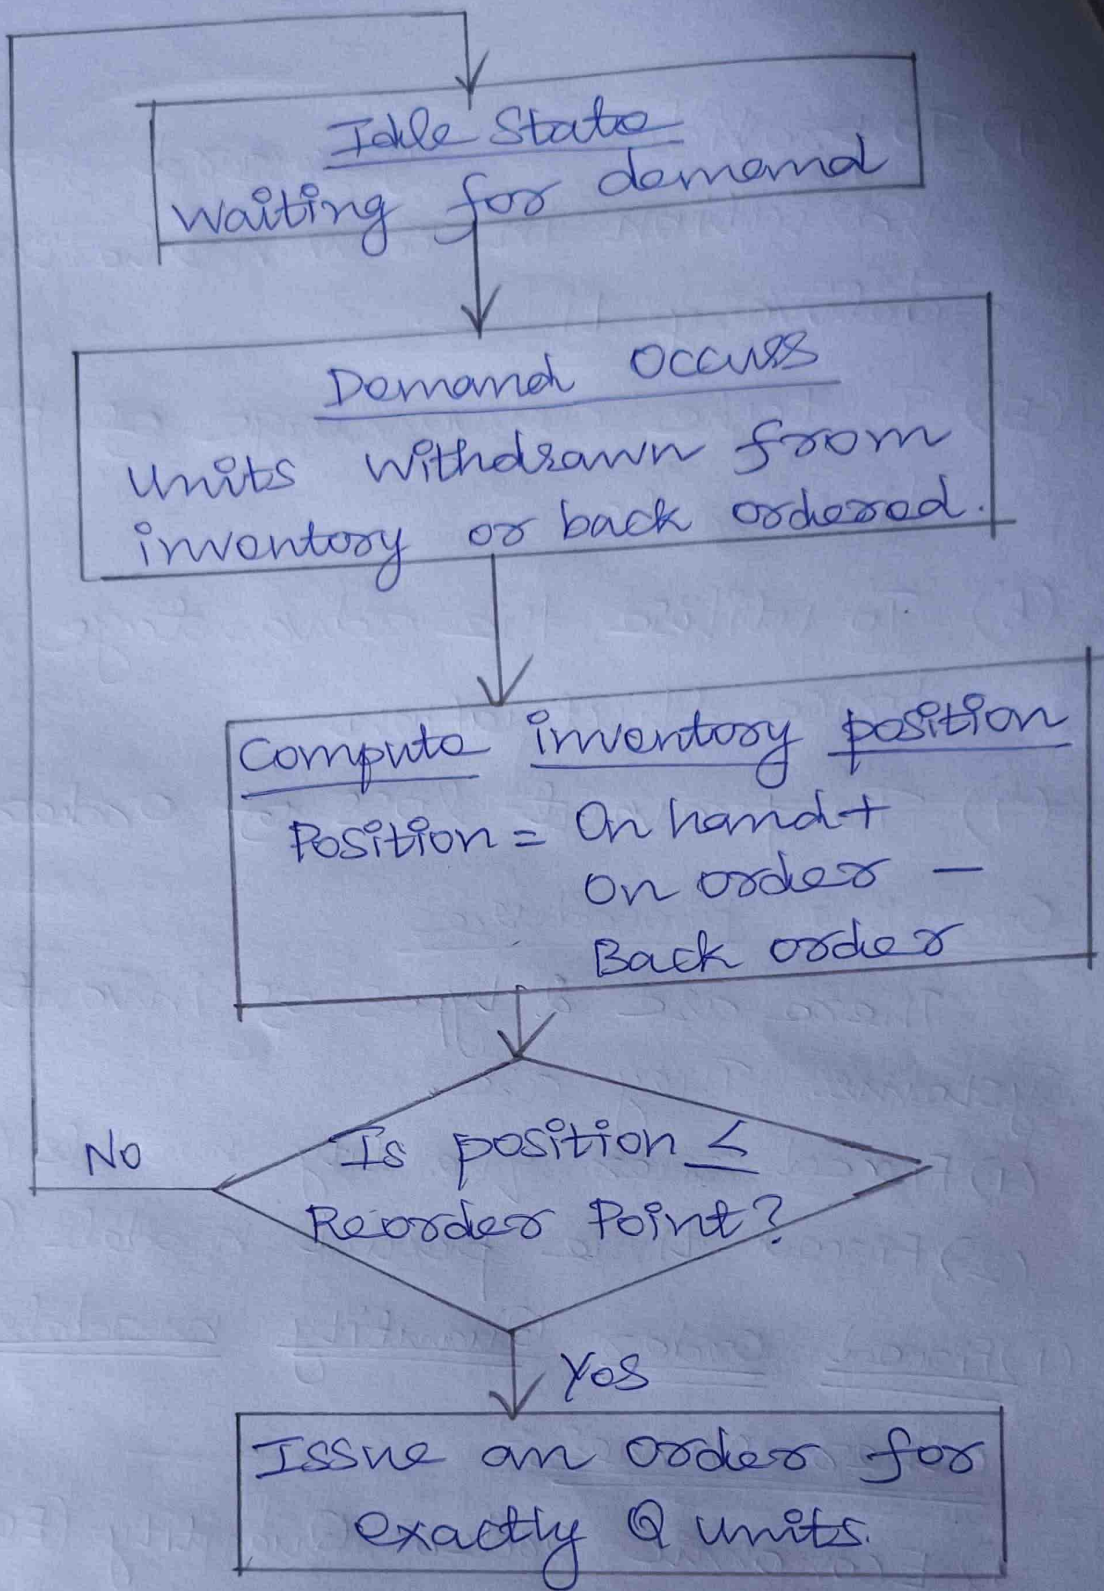 Idle State
Waiting for demand
Demand occurs
Units withdrawn from
inventory or back ordered.
Compute inventory position
Position = On hand +
On order -
Back order
No
Is position ≤
Reorder Point?
Yes
Issue an order for
exactly Q units.